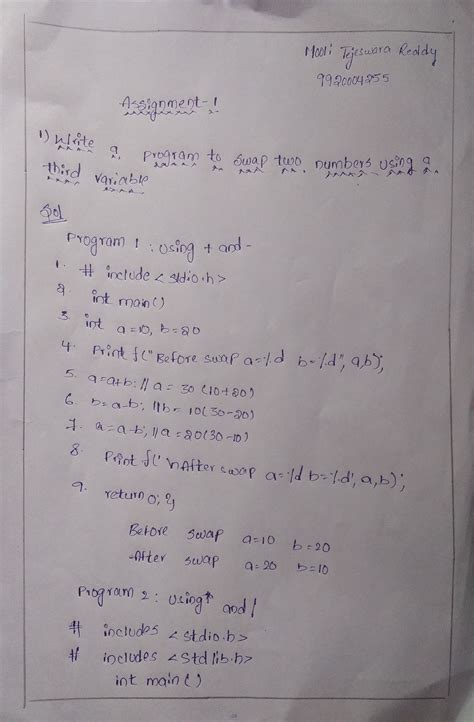 Mooli Tejeswara Reddy
9920004255
Assignment-1
1) Write a program to swap two numbers using a
third variable
Sol
Program 1 : using + and -
1. # include < stdio.h>
2. int main()
3. int a=10, b=20
4. Print f("Before swap a=%d b=%d", a,b);
5. a=a+b; // a = 30 (10+20)
6. b=a-b; // b = 10(30-20)
7. a=a-b; // a = 20(30-10)
8. Print f(" \nAfter swap a=%d b=%d", a,b);
9. return 0; }
Before swap a=10 b=20
-After swap a=20 b=10
Program 2 : using * and /
# includes < stdio.h>
# includes < stdlib.h>
int main()